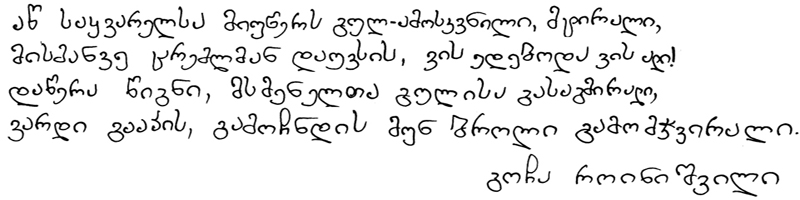 აწ საყვარელსა მიუწერს გულ-ამოსკვნილი, მტირალი,
მისმანვე ცრემლმან დაუვსის, ვის ედებოდა ვის ალი!
დაწერა წიგნი, მსმენელთა გულისა გასაგმირალი,
ვარდი გააპის, გამოჩნდის მუნ ბროლი გამომჭვირალი.
გოჩა როინიშვილი